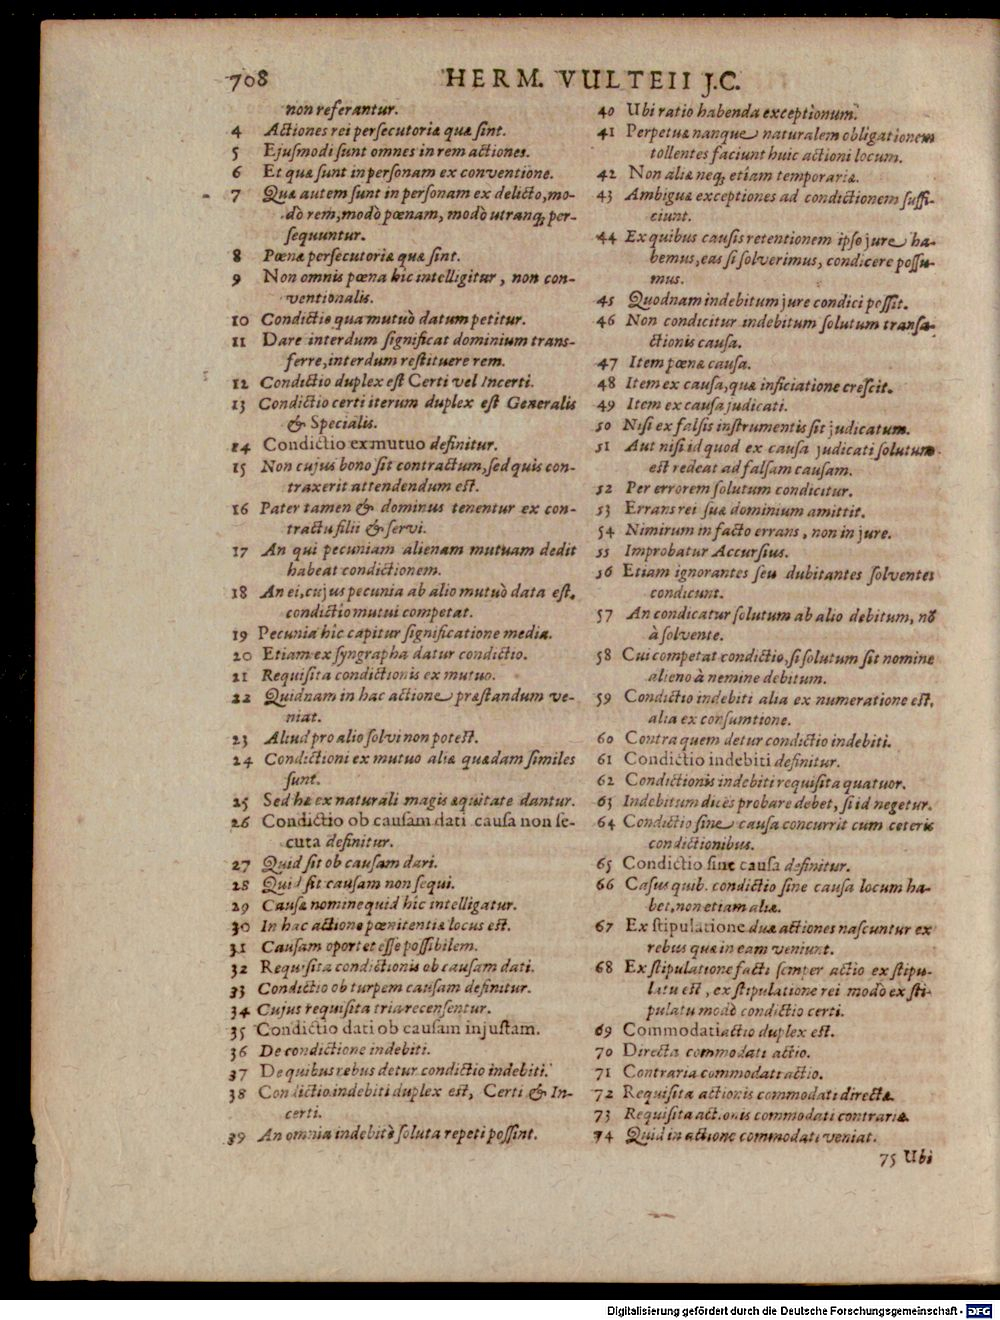 708 HERM. VULTEII J.C.
non referantur.
4 Actiones rei persecutoriæ quæ sint.
5 Ejusmodi sunt omnes in rem actiones.
6 Et quæ sunt in personam ex conventione.
7 Quæ autem sunt in personam ex delicto, mo-
dò rem, modò pœnam, modò utranq; per-
sequuntur.
8 Pœnæ persecutoriæ quæ sint.
9 Non omnis pœna hîc intelligitur, non con-
ventionalis.
10 Condictio qua mutuò datum petitur.
11 Dare interdum significat dominium trans-
ferre, interdum restituere rem.
12 Condictio duplex est Certi vel Incerti.
13 Condictio certi iterum duplex est Generalis
& Specialis.
14 Condictio ex mutuo definitur.
15 Non cujus bono sit contractum, sed quis con-
traxerit attendendum est.
16 Pater tamen & dominus tenentur ex con-
tractu filii & servi.
17 An qui pecuniam alienam mutuam dedit
habeat condictionem.
18 An ei, cujus pecunia ab alio mutuò data est,
condictio mutui competat.
19 Pecunia hîc capitur significatione media.
20 Etiam ex syngrapha datur condictio.
21 Requisita condictionis ex mutuo.
22 Quidnam in hac actione præstandum ve-
niat.
23 Aliud pro alio solvi non potest.
24 Condictioni ex mutuo aliæ quædam similes
sunt.
25 Sed hæ ex naturali magis æquitate dantur.
26 Condictio ob causam dati causa non se-
cuta definitur.
27 Quid sit ob causam dari.
28 Quid sit causam non sequi.
29 Causæ nomine quid hîc intelligatur.
30 In hac actione pœnitentiæ locus est.
31 Causam oportet esse possibilem.
32 Requisita condictionis ob causam dati.
33 Condictio ob turpem causam definitur.
34 Cujus requisita tria recensentur.
35 Condictio dati ob causam injustam.
36 De condictione indebiti.
37 De quibus rebus detur condictio indebiti.
38 Condictio indebiti duplex est, Certi & In-
certi.
39 An omnia indebitè soluta repeti possint.
40 Ubi ratio habenda exceptionum.
41 Perpetuæ nanque naturalem obligationem
tollentes faciunt huic actioni locum.
42 Non aliæ neq; etiam temporariæ.
43 Ambiguæ exceptiones ad condictionem suffi-
ciunt.
44 Ex quibus causis retentionem ipso jure ha-
bemus, eas si solverimus, condicere possu-
mus.
45 Quodnam indebitum jure condici possit.
46 Non condicitur indebitum solutum transa-
ctionis causa.
47 Item pœnæ causa.
48 Item ex causa, quæ inficiatione crescit.
49 Item ex causa judicati.
50 Nisi ex falsis instrumentis sit judicatum.
51 Aut nisi id quod ex causa judicati solutum
est redeat ad falsam causam.
52 Per errorem solutum condicitur.
53 Errans rei suæ dominium amittit.
54 Nimirum in facto errans, non in jure.
55 Improbatur Accursius.
56 Etiam ignorantes seu dubitantes solventes
condicunt.
57 An condicatur solutum ab alio debitum, nō
à solvente.
58 Cui competat condictio, si solutum sit nomine
alieno à nemine debitum.
59 Condictio indebiti alia ex numeratione est,
alia ex consumtione.
60 Contra quem detur condictio indebiti.
61 Condictio indebiti definitur.
62 Condictionis indebiti requisita quatuor.
63 Indebitum dicēs probare debet, si id negetur.
64 Condictio sine causa concurrit cum ceteris
condictionibus.
65 Condictio sine causa definitur.
66 Casus quib. condictio sine causa locum ha-
bet, non etiam aliæ.
67 Ex stipulatione duæ actiones nascuntur ex
rebus quæ in eam veniunt.
68 Ex stipulatione facti semper actio ex stipu-
latu est, ex stipulatione rei modò ex sti-
pulatu modò condictio certi.
69 Commodati actio duplex est.
70 Directa commodati actio.
71 Contraria commodati actio.
72 Requisita actionis commodati directæ.
73 Requisita actionis commodati contrariæ.
74 Quid in actione commodati veniat.
75 Ubi
Digitalisierung gefördert durch die Deutsche Forschungsgemeinschaft - DFG